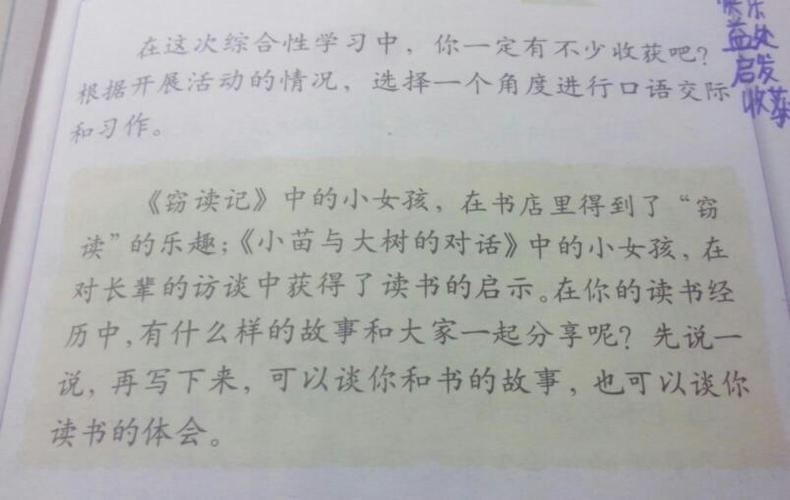 快乐
益处
启发
收获
在这次综合性学习中，你一定有不少收获吧？
根据开展活动的情况，选择一个角度进行口语交际
和习作。
《窃读记》中的小女孩，在书店里得到了“窃
读”的乐趣；《小苗与大树的对话》中的小女孩，在
对长辈的访谈中获得了读书的启示。在你的读书经
历中，有什么样的故事和大家一起分享呢？先说一
说，再写下来，可以谈你和书的故事，也可以谈你
读书的体会。